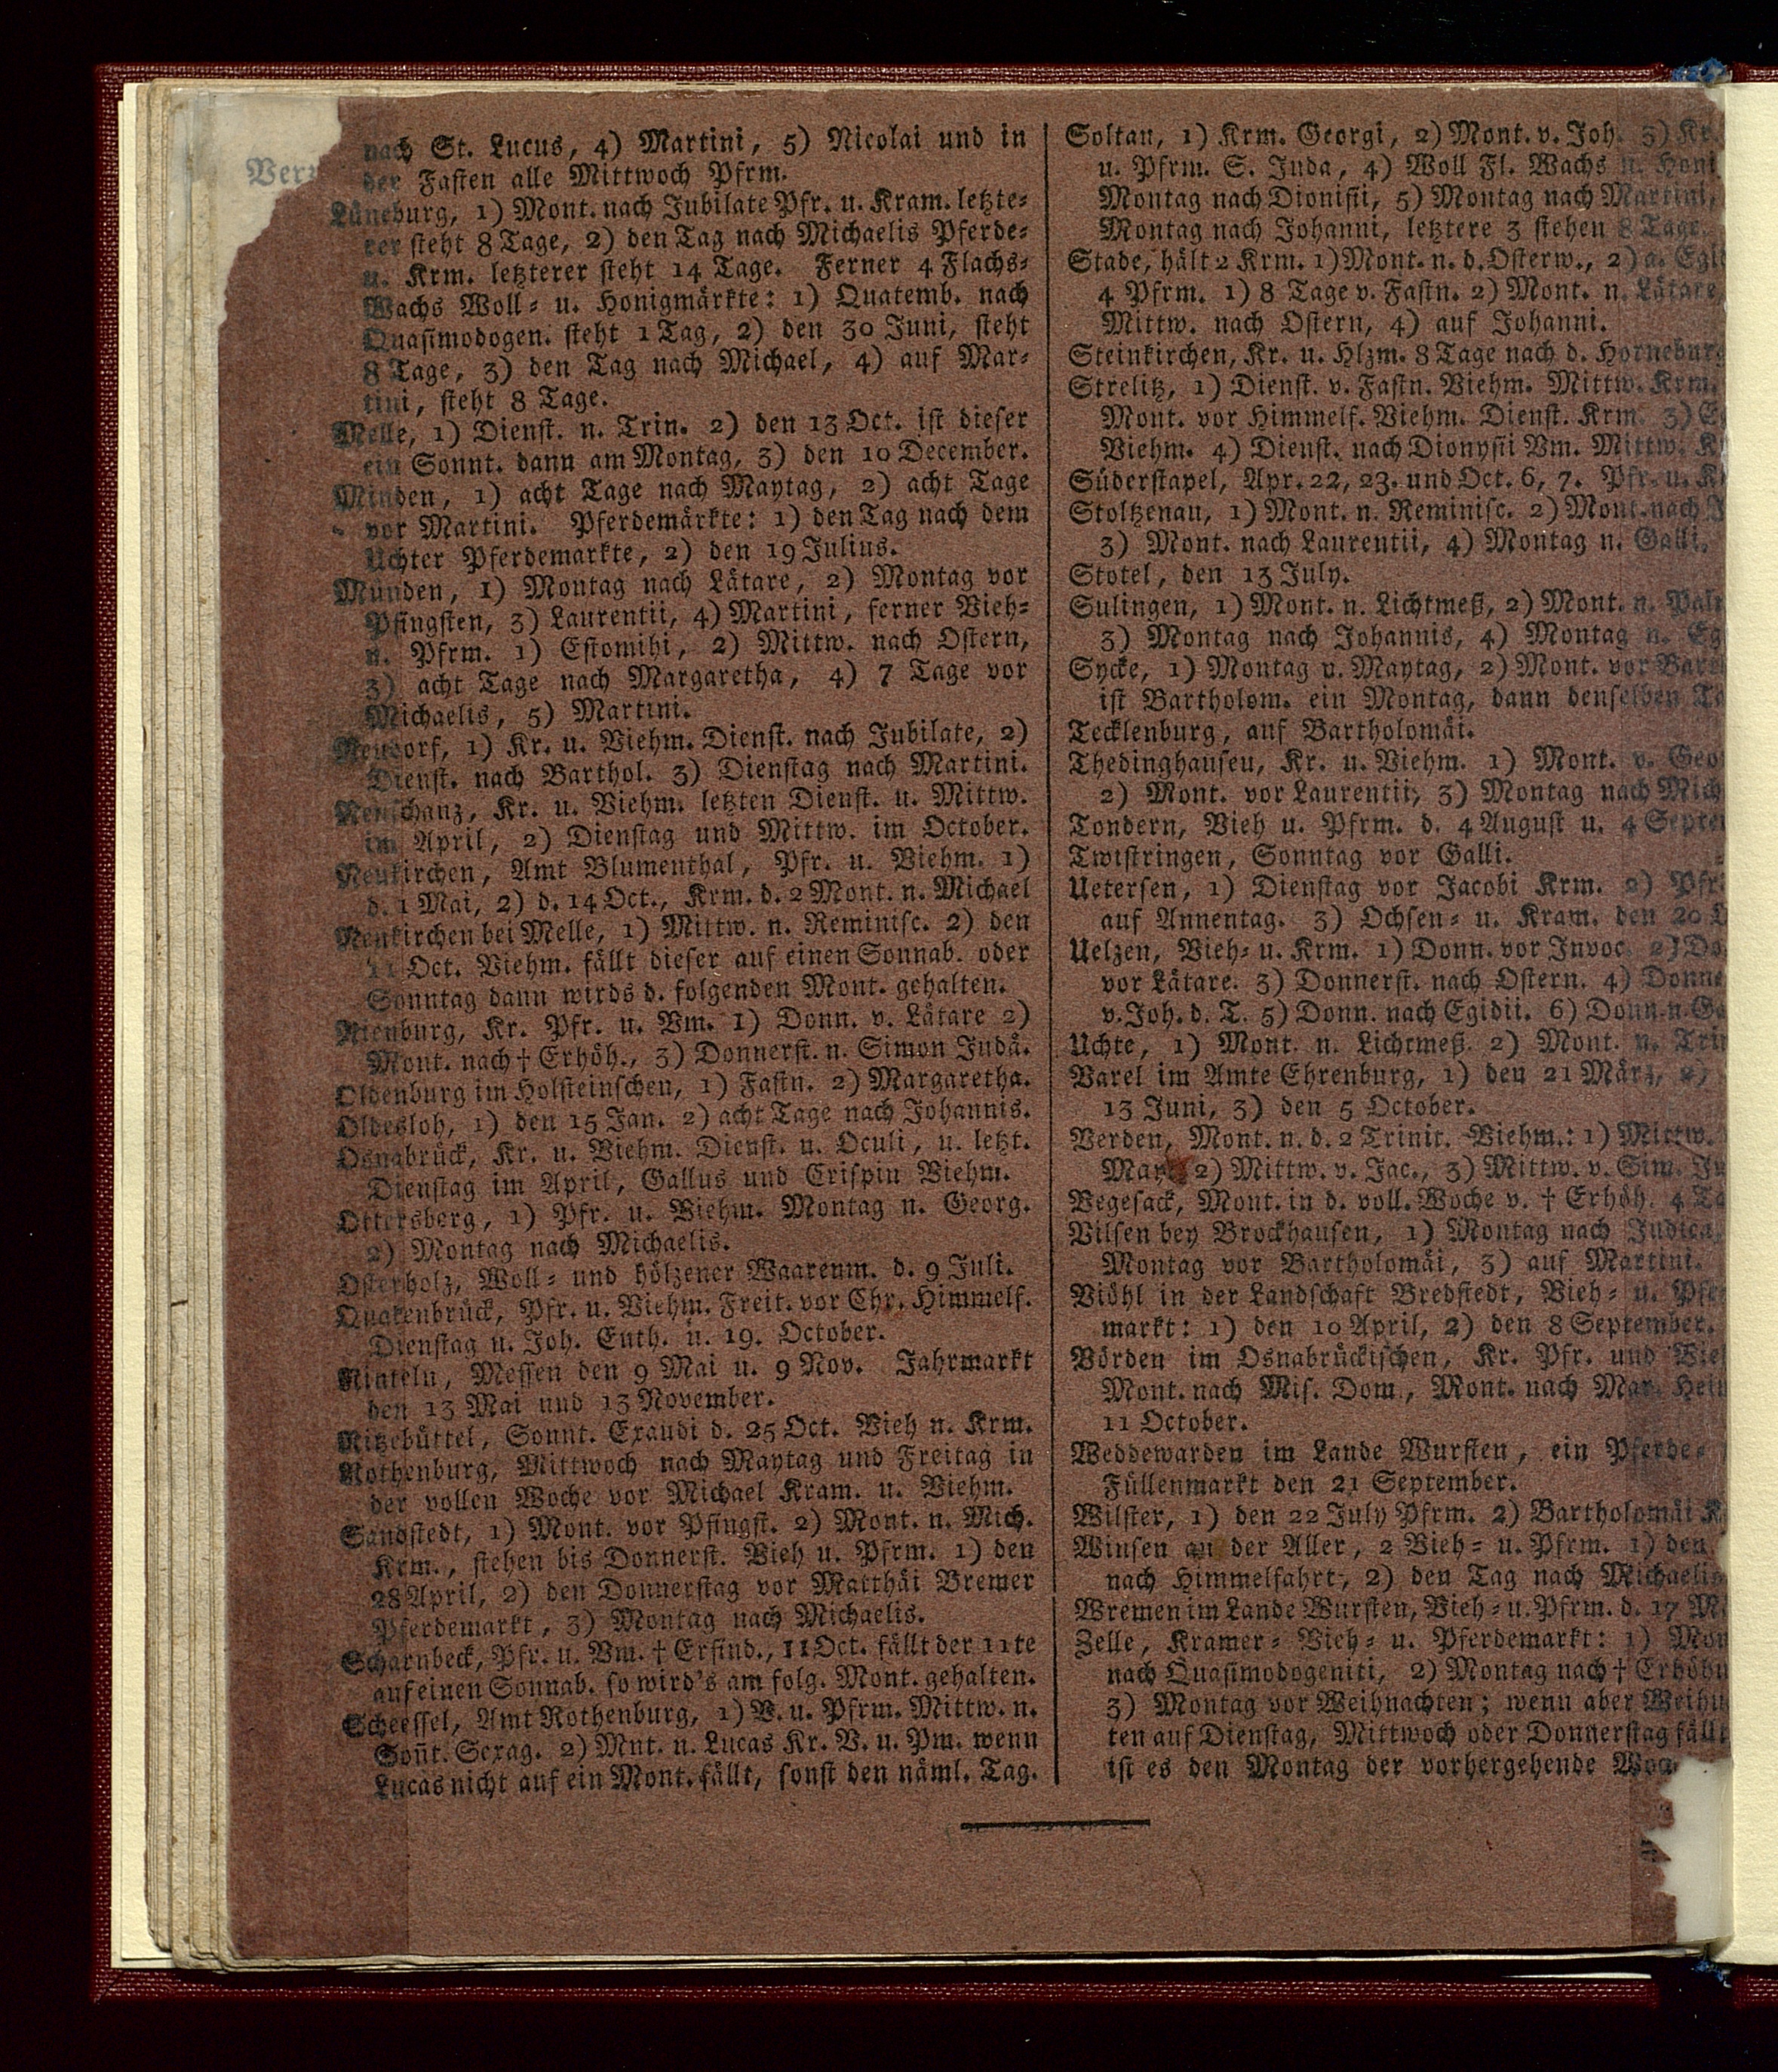 Verz
nach St. Lucus, 4) Martini, 5) Nicolai und in
der Fasten alle Mittwoch Pfrm.
Lüneburg, 1) Mont. nach Jubilate Pfr. u. Kram. letzte-
rer steht 8 Tage, 2) den Tag nach Michaelis Pferde-
u. Krm. letzterer steht 14 Tage. Ferner 4 Flachs-
Wachs Woll- u. Honigmärkte: 1) Quatemb. nach
Quasimodogen. steht 1 Tag, 2) den 30 Juni, steht
8 Tage, 3) den Tag nach Michael, 4) auf Mar-
tini, steht 8 Tage.
Melle, 1) Dienst. n. Trin. 2) den 13 Oct. ist dieser
ein Sonnt. dann am Montag, 3) den 10 December.
Minden, 1) acht Tage nach Maytag, 2) acht Tage
vor Martini. Pferdemärkte: 1) den Tag nach dem
Uchter Pferdemarkte, 2) den 19 Julius.
Münden, 1) Montag nach Lätare, 2) Montag vor
Pfingsten, 3) Laurentii, 4) Martini, ferner Vieh-
u. Pfrm. 1) Estomihi, 2) Mittw. nach Ostern,
3) acht Tage nach Margaretha, 4) 7 Tage vor
Michaelis, 5) Martini.
Neudorf, 1) Kr. u. Viehm. Dienst. nach Jubilate, 2)
Dienst. nach Barthol. 3) Dienstag nach Martini.
Neuschanz, Kr. u. Viehm. letzten Dienst. u. Mittw.
im April, 2) Dienstag und Mittw. im October.
Neukirchen, Amt Blumenthal, Pfr. u. Viehm. 1)
d. 1 Mai, 2) d. 14 Oct., Krm. d. 2 Mont. n. Michael
Neukirchen bei Melle, 1) Mittw. n. Reminisc. 2) den
11 Oct. Viehm. fällt dieser auf einen Sonnab. oder
Sonntag dann wirds d. folgenden Mont. gehalten.
Nienburg, Kr. Pfr. u. Vm. 1) Donn. v. Lätare 2)
Mont. nach † Erhöh., 3) Donnerst. n. Simon Judä.
Oldenburg im Holsteinschen, 1) Fastn. 2) Margaretha.
Oldesloh, 1) den 15 Jan. 2) acht Tage nach Johannis.
Osnabrück, Kr. u. Viehm. Dienst. u. Oculi, u. letzt.
Dienstag im April, Gallus und Crispin Viehm.
Ottersberg, 1) Pfr. u. Viehm. Montag n. Georg.
2) Montag nach Michaelis.
Osterholz, Woll- und hölzener Waarenm. d. 9 Juli.
Quakenbrück, Pfr. u. Viehm. Freit. vor Chr. Himmelf.
Dienstag n. Joh. Enth. u. 19. October.
Rinteln, Messen den 9 Mai u. 9 Nov. Jahrmarkt
den 13 Mai und 13 November.
Ritzebüttel, Sonnt. Exaudi d. 25 Oct. Vieh n. Krm.
Rothenburg, Mittwoch nach Maytag und Freitag in
der vollen Woche vor Michael Kram. u. Viehm.
Sandstedt, 1) Mont. vor Pfingst. 2) Mont. n. Mich.
Krm., stehen bis Donnerst. Vieh u. Pfrm. 1) den
28 April, 2) den Donnerstag vor Matthäi Bremer
Pferdemarkt, 3) Montag nach Michaelis.
Scharnbeck, Pfr. u. Vm. † Erfind., 11 Oct. fällt der 11te
auf einen Sonnab. so wird's am folg. Mont. gehalten.
Scheessel, Amt Rothenburg, 1) V. u. Pfrm. Mittw. n.
Soñt. Sexag. 2) Mnt. n. Lucas Kr. V. u. Pm. wenn
Lucas nicht auf ein Mont. fällt, sonst den näml. Tag.
Soltau, 1) Krm. Georgi, 2) Mont. v. Joh. 3) Kr.
u. Pfrm. S. Juda, 4) Woll Fl. Wachs u. Honi
Montag nach Dionisii, 5) Montag nach Martini,
Montag nach Johanni, letztere 3 stehen 8 Tage.
Stade, hält 2 Krm. 1) Mont. n. d. Osterw., 2) a. Egi
4 Pfrm. 1) 8 Tage v. Fastn. 2) Mont. n. Lätare,
Mittw. nach Ostern, 4) auf Johanni.
Steinkirchen, Kr. u. Hlzm. 8 Tage nach d. Horneburg
Strelitz, 1) Dienst. v. Fastn. Viehm. Mittw. Krm.
Mont. vor Himmelf. Viehm. Dienst. Krm. 3)
Viehm. 4) Dienst. nach Dionysii Vm. Mittw. K
Süderstapel, Apr. 22, 23. und Oct. 6, 7. Pfr. u. K
Stoltzenau, 1) Mont. n. Reminisc. 2) Mont. nach J
3) Mont. nach Laurentii, 4) Montag n. Galli.
Stotel, den 13 July.
Sulingen, 1) Mont. n. Lichtmeß, 2) Mont. n. Palm
3) Montag nach Johannis, 4) Montag n. Eg
Sycke, 1) Montag v. Maytag, 2) Mont. vor Bart
ist Bartholom. ein Montag, dann denselben Ta
Tecklenburg, auf Bartholomäi.
Thedinghausen, Kr. u. Viehm. 1) Mont. v. Geo
2) Mont. vor Laurentii, 3) Montag nach Mich
Tondern, Vieh u. Pfrm. d. 4 August u. 4 Septe
Twistringen, Sonntag vor Galli.
Uetersen, 1) Dienstag vor Jacobi Krm. 2) Pfr.
auf Annentag. 3) Ochsen- u. Kram. den 20 O
Uelzen, Vieh- u. Krm. 1) Donn. vor Invoc. 2) Do
vor Lätare. 3) Donnerst. nach Ostern. 4) Donne
v. Joh. d. T. 5) Donn. nach Egidii. 6) Donn. n. Ga
Uchte, 1) Mont. n. Lichtmeß. 2) Mont. n. Trin
Varel im Amte Ehrenburg, 1) den 21 März, 2)
13 Juni, 3) den 5 October.
Verden, Mont. n. d. 2 Trinit. Viehm.: 1) Mittw.
May 2) Mittw. v. Jac., 3) Mittw. v. Sim. Ju
Vegesack, Mont. in d. voll. Woche v. † Erhöh. 4 Ta
Vilsen bey Brockhausen, 1) Montag nach Judica,
Montag vor Bartholomäi, 3) auf Martini.
Viöhl in der Landschaft Bredstedt, Vieh- u. Pfe
markt: 1) den 10 April, 2) den 8 September.
Vörden im Osnabrückischen, Kr. Pfr. und Vie
Mont. nach Mis. Dom., Mont. nach Mar. Heim
11 October.
Weddewarden im Lande Wursten, ein Pferde-
Füllenmarkt den 21 September.
Wilster, 1) den 22 July Pfrm. 2) Bartholomäi K
Winsen an der Aller, 2 Vieh- u. Pfrm. 1) den
nach Himmelfahrt, 2) den Tag nach Michaelis
Wremen im Lande Wursten, Vieh- u. Pfrm. d. 17 M
Zelle, Kramer- Vieh- u. Pferdemarkt: 1) Mon
nach Quasimodogeniti, 2) Montag nach † Erhöhu
3) Montag vor Weihnachten; wenn aber Weihn
ten auf Dienstag, Mittwoch oder Donnerstag fällt
ist es den Montag der vorhergehende Woc